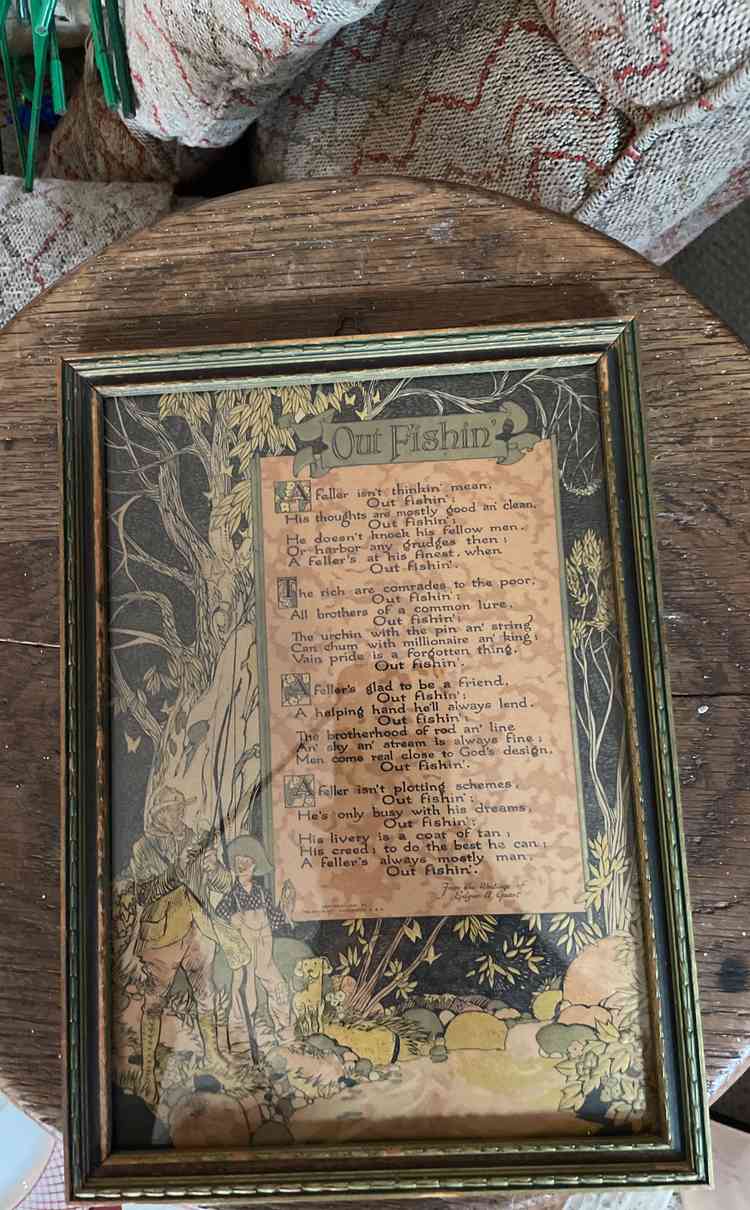 Out Fishin'
A feller isn't thinkin' mean,
Out fishin';
His thoughts are mostly good an' clean,
Out fishin';
He doesn't knock his fellow men,
Or harbor any grudges then;
A feller's at his finest, when
Out fishin'.
The rich are comrades to the poor,
Out fishin';
All brothers of a common lure,
Out fishin';
The urchin with the pin an' string
Can chum with millionaire an' king;
Vain pride is a forgotten thing,
Out fishin'.
A feller's glad to be a friend,
Out fishin';
A helping hand he'll always lend,
Out fishin';
The brotherhood of rod an' line
An' sky an' stream is always fine;
Men come real close to God's design,
Out fishin'.
A feller isn't plotting schemes,
Out fishin';
He's only busy with his dreams,
Out fishin';
His livery is a coat of tan;
His creed; to do the best he can;
A feller's always mostly man,
Out fishin'.
From the Writings of
Edgar A. Guest